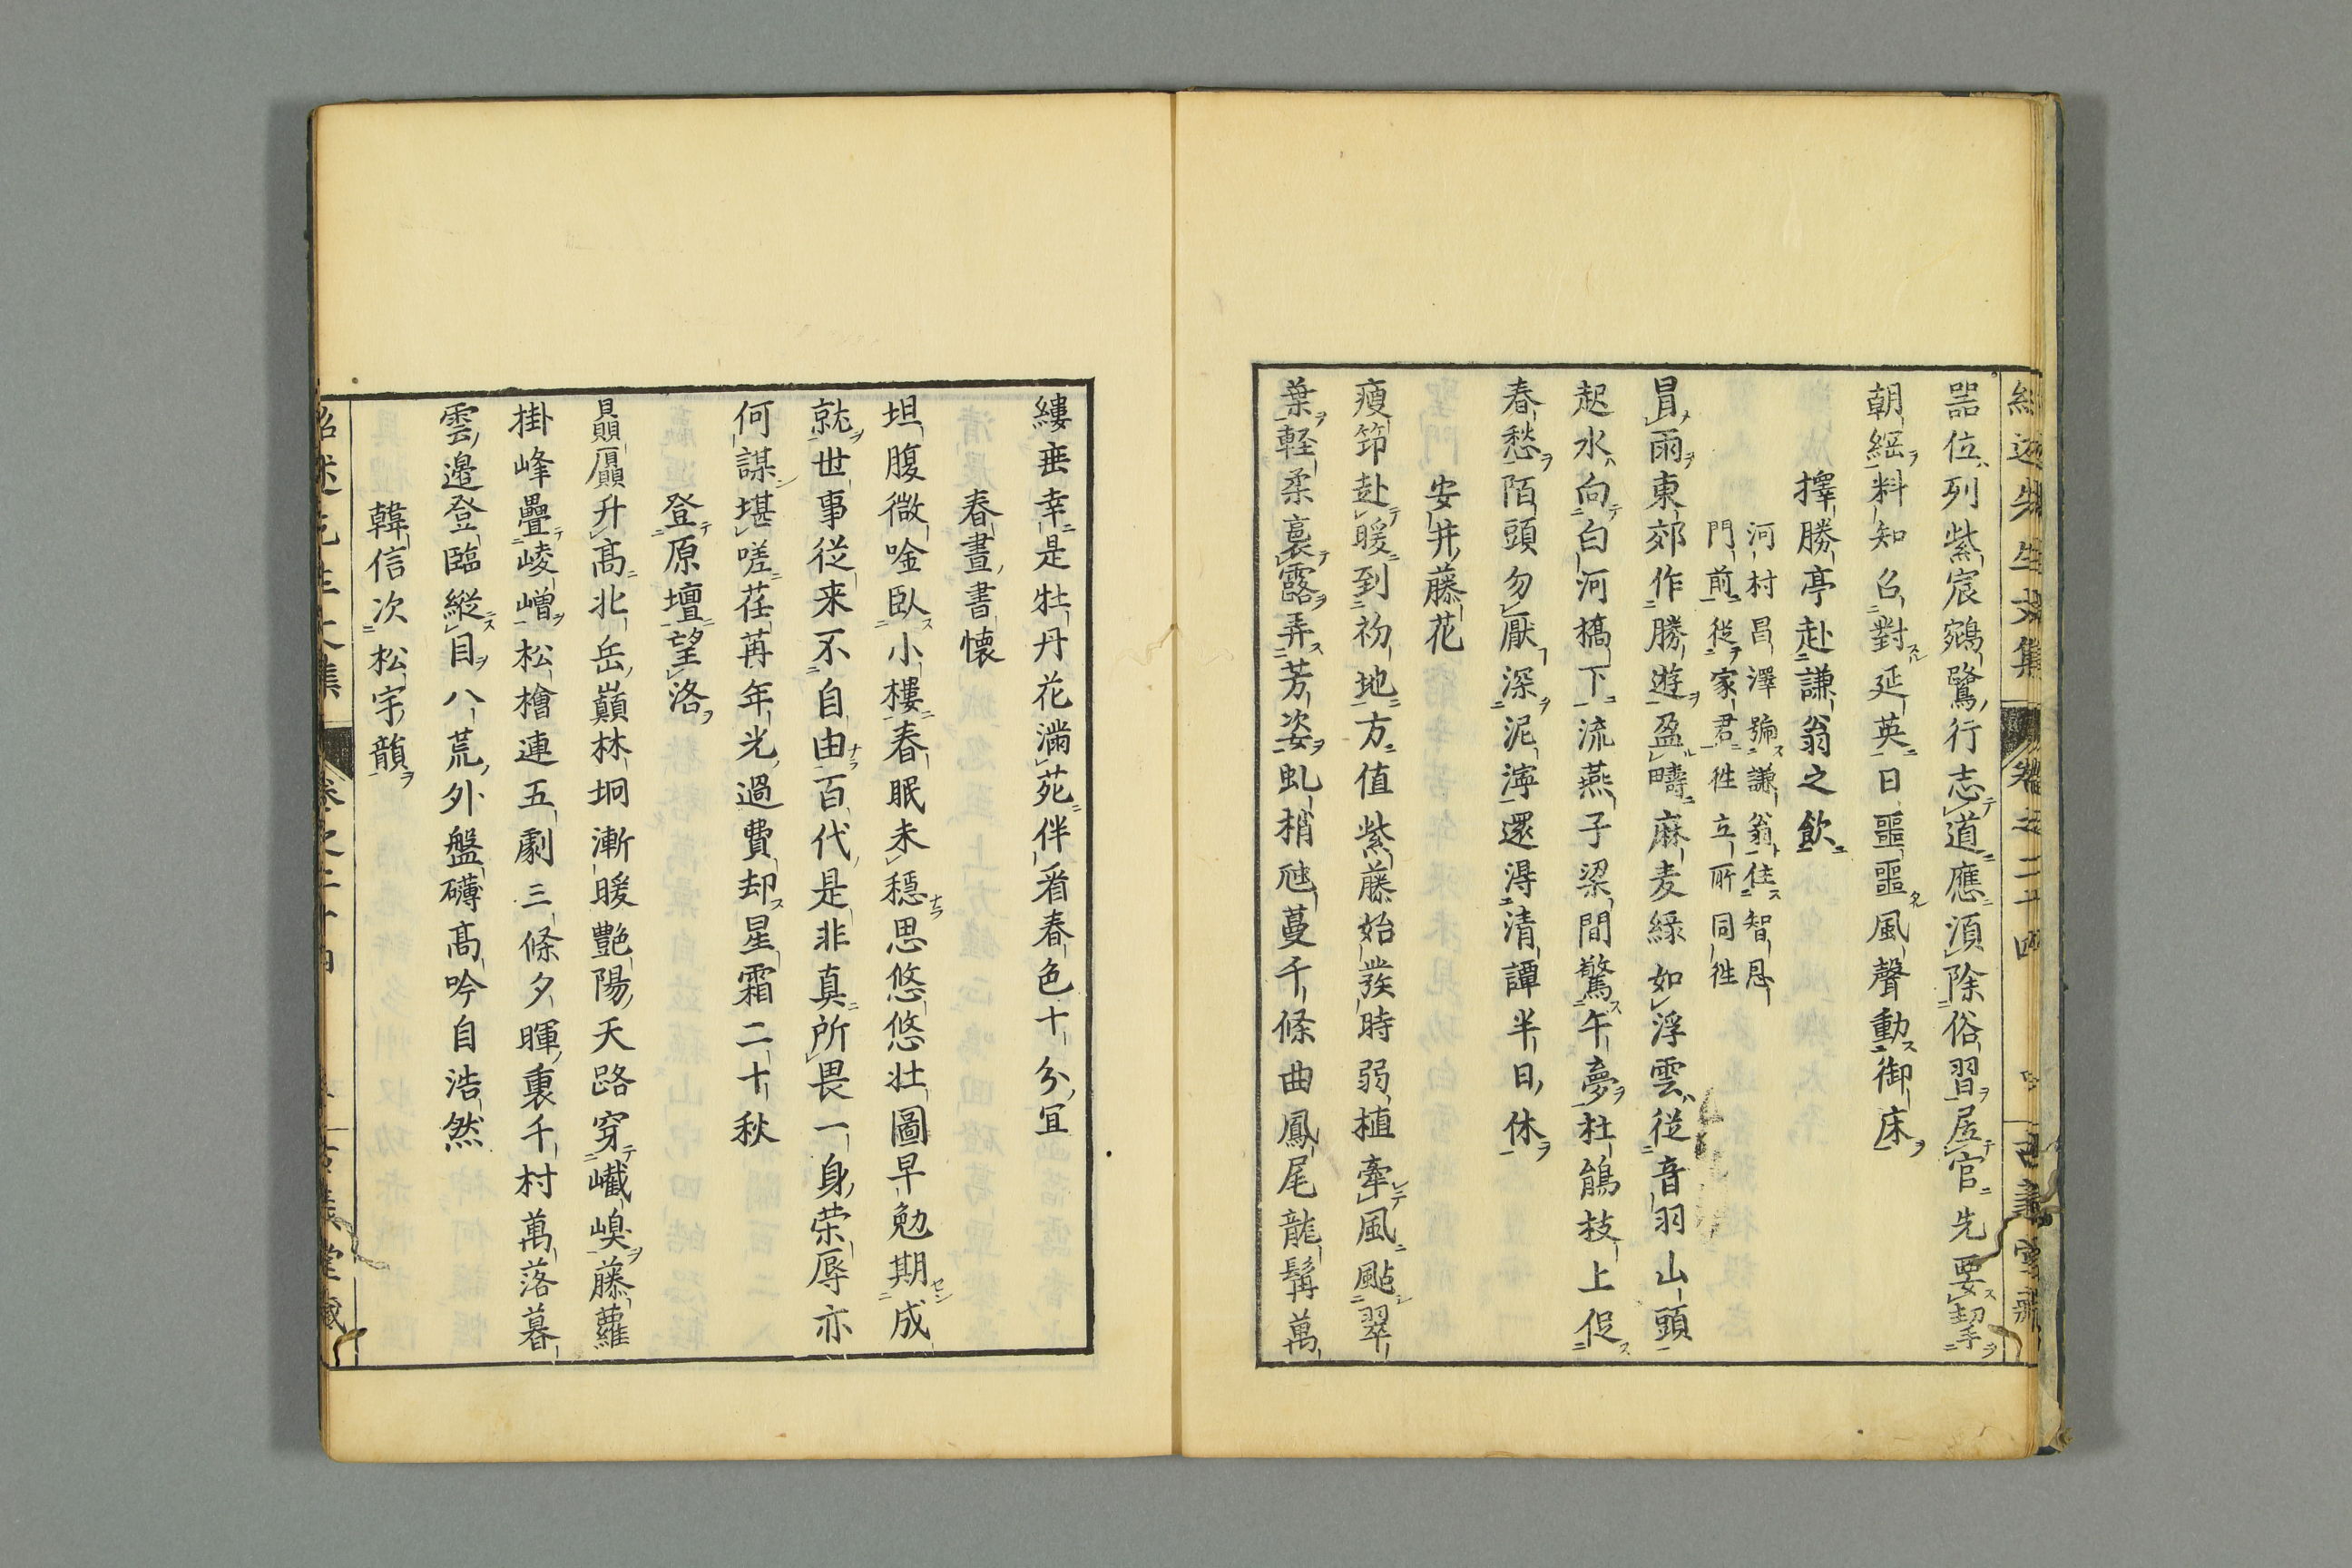 紹述先生文集 卷之二十四 古義堂藏
噐位列紫宸鵷鷺行志道應湏除俗習居官先要挈
朝綱料知召對延英日噩噩風聲動御床
擇勝亭赴謙翁之飲
河村昌澤號謙翁住智恩
門前從家君徃立所同徃
冒雨東郊作勝遊盈疇麻麦緑如浮雲從音羽山頭
起水向白河橋下流燕子梁間驚午夢杜鵑枝上促
春愁陌頭勿厭深泥濘還得清譚半日休
安井藤花
瘦筇赴暖到礿地方值紫藤始發時弱植牽風颭翠
葉軽柔裛露弄芳姿虬梢虺蔓千條曲鳳尾龍髯萬
縷垂幸是牡丹花滿苑伴看春色十分宜
春晝書懷
坦腹微唫臥小樓春眠未穩思悠悠壮圖早勉期成
就世事從来不自由百代是非真所畏一身荣辱亦
何謀堪嗟荏苒年光過費却星霜二十秋
登原壇望洛
贔屭升髙北岳巔林坰漸暖艷陽天路穿巇嵲藤蘿
掛峰疊崚嶒松檜連五劇三條夕暉裏千村萬落暮
雲邉登臨縱目八荒外盤礴髙吟自浩然
韓信次松宇韻
紹述先生文集 卷之二十四 古義堂藏